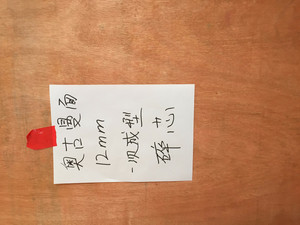 奥古曼面
12mm
一次成型
碎芯